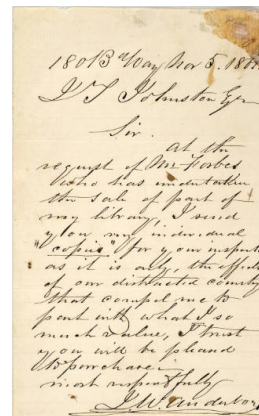 180 B'Way Nov 5. 18
D T Johnston Esqr
Sir.
At the
request of Mr Forbes
who has undertaken
the sale of part of
my library, I send
you my individual
"copies" for your inspect
as it is only, the effects
of our distracted country
that compel me to
part with what I so
much value, I trust
you will be pleased
to purchase.
most respectfully
J.W.